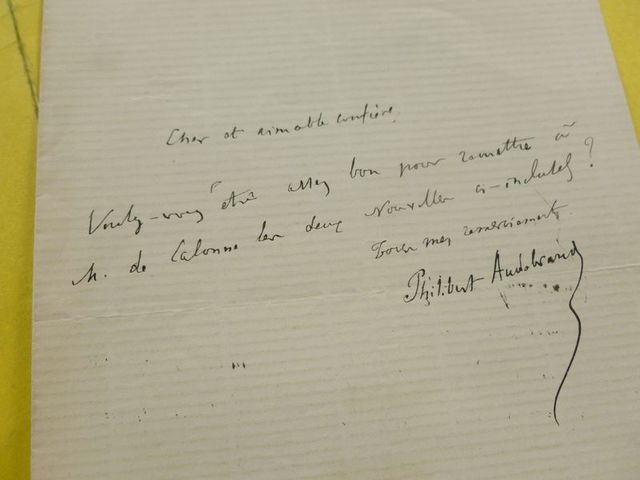 Cher et aimable confrère,
Voulez-vous être assez bon pour remettre à
M. de Calonne les deux Nouvelles ci-incluses ?
Tous mes remerciements.
Philibert Audebrand